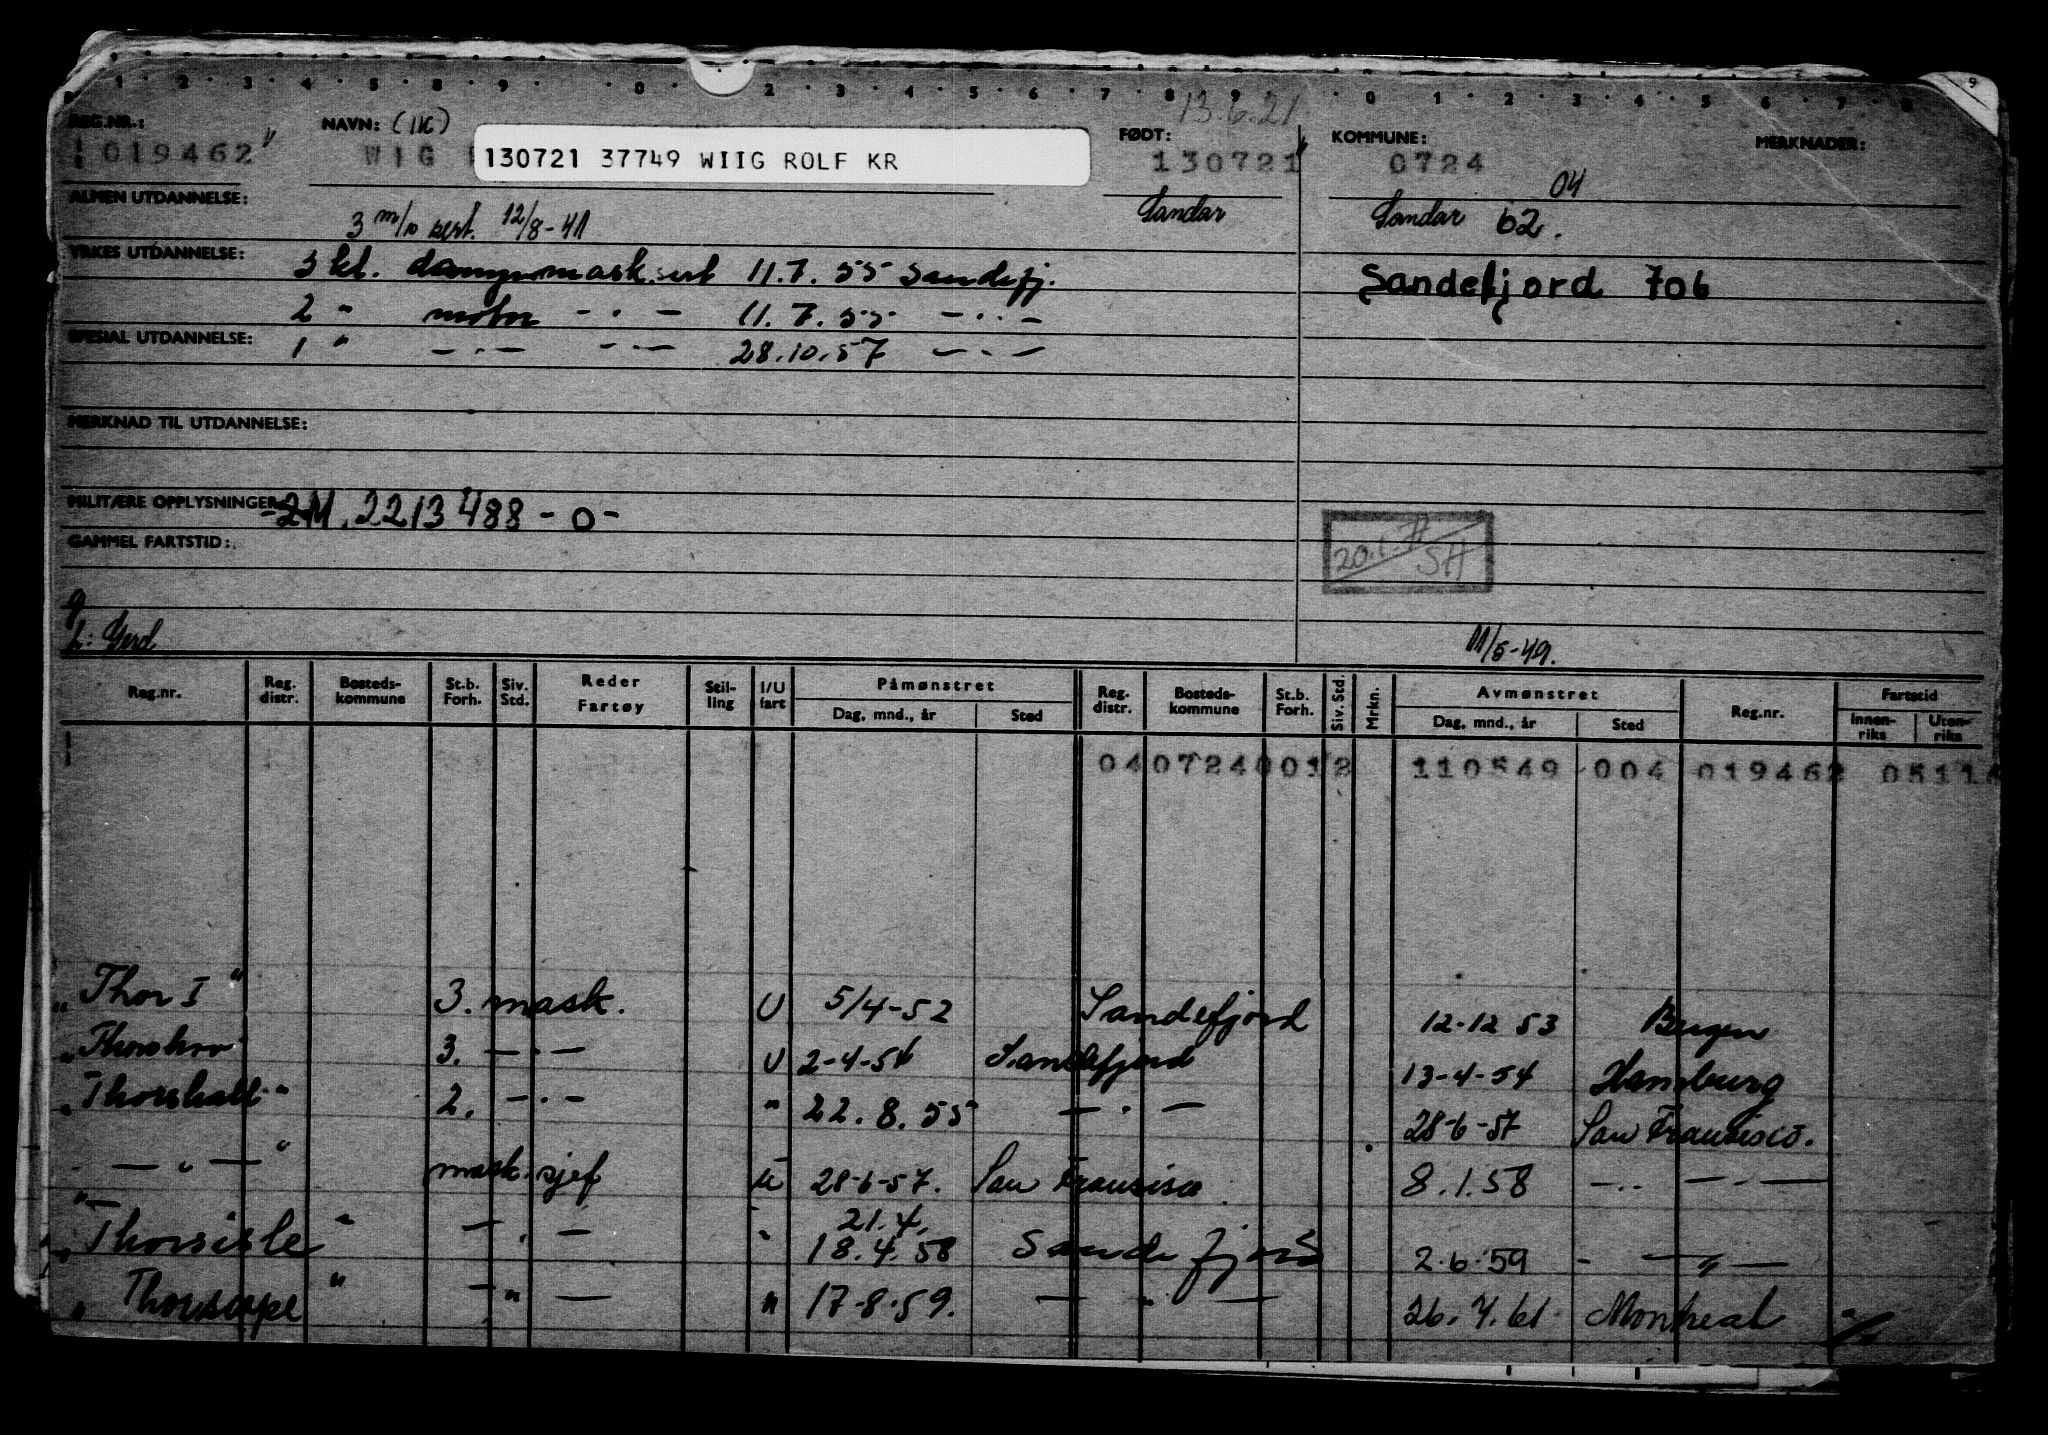 1 2 3 4 5 8 9 0 2 3 4 5 6 7 8 9 0 1 2 3 4 5 6 7 8 9
13.6.21
REG.NR.: NAVN: (IIG) FØDT: KOMMUNE: MERKNADER:
019462 WIG 130721 37749 WIIG ROLF KR 130721 0724
ALMEN UTDANNELSE: Sandar 04
3 m/o sert. 12/8-41 Sandar 62.
YRKES UTDANNELSE: 3 kl. dampmask.sert 11.7.55 Sandefj. Sandefjord 706
2 " motor - . - 11.7.55 - . . -
SPESIAL UTDANNELSE: 1 " - . - - . - 28.10.57 - . -
MERKNAD TIL UTDANNELSE:
MILITÆRE OPPLYSNINGER -2M. 2213488 - 0 -
GAMMEL FARTSTID: 20.1.77 SH
g
h: Gerd 11/5-49.
Reg.nr. Reg. distr. Bosteds-kommune St.b. Forh. Siv. Std. Reder Fartøy Stil-ling I/U fart Påmønstret Dag, mnd., år Sted Reg. distr. Bosteds-kommune St.b. Forh. Siv. Std. Mrkn. Avmønstret Dag, mnd., år Sted Reg.nr. Fartstid Innen-riks Uten-riks
04 0724 0012 110549 004 019462 0511
"Thor I" 3. mask. U 5/4-52 Sandefjord 12-12 53 Bergen
"Thorshov" 3. - . - U 2-4-54 Sandefjord 13-4-54 Hamburg
"Thorshall" 2. - . - " 22.8.55 - . - 28-6-57 San Fransisco.
- " - " mask.sjef U 28-6-57. San Fransisco 8.1.58 - . . - . -
21.4.
"Thorsisle" - . - " 18.4.58 Sandefjord 2.6.59 - - " -
"Thorscape" - " - " 17-8-59. - " - 26.4.61 Montreal